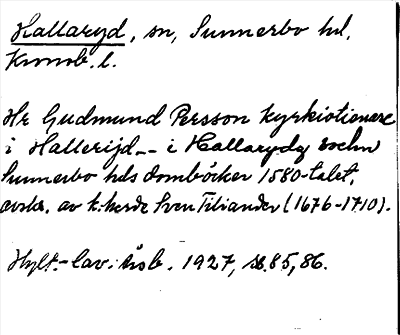 Hallaryd, sn, Sunnerbo hd,
Kronob. l.
Hr Gudmund Persson kyrkiotienare
i Hallerijd-- i Hallarydz sochn
Sunnerbo hds domböcker 1580-talet,
avskr. av k:herde Sven Tiliander (1676-1710).
Hylt.-Cav:s årsb. 1927, s. 85, 86.